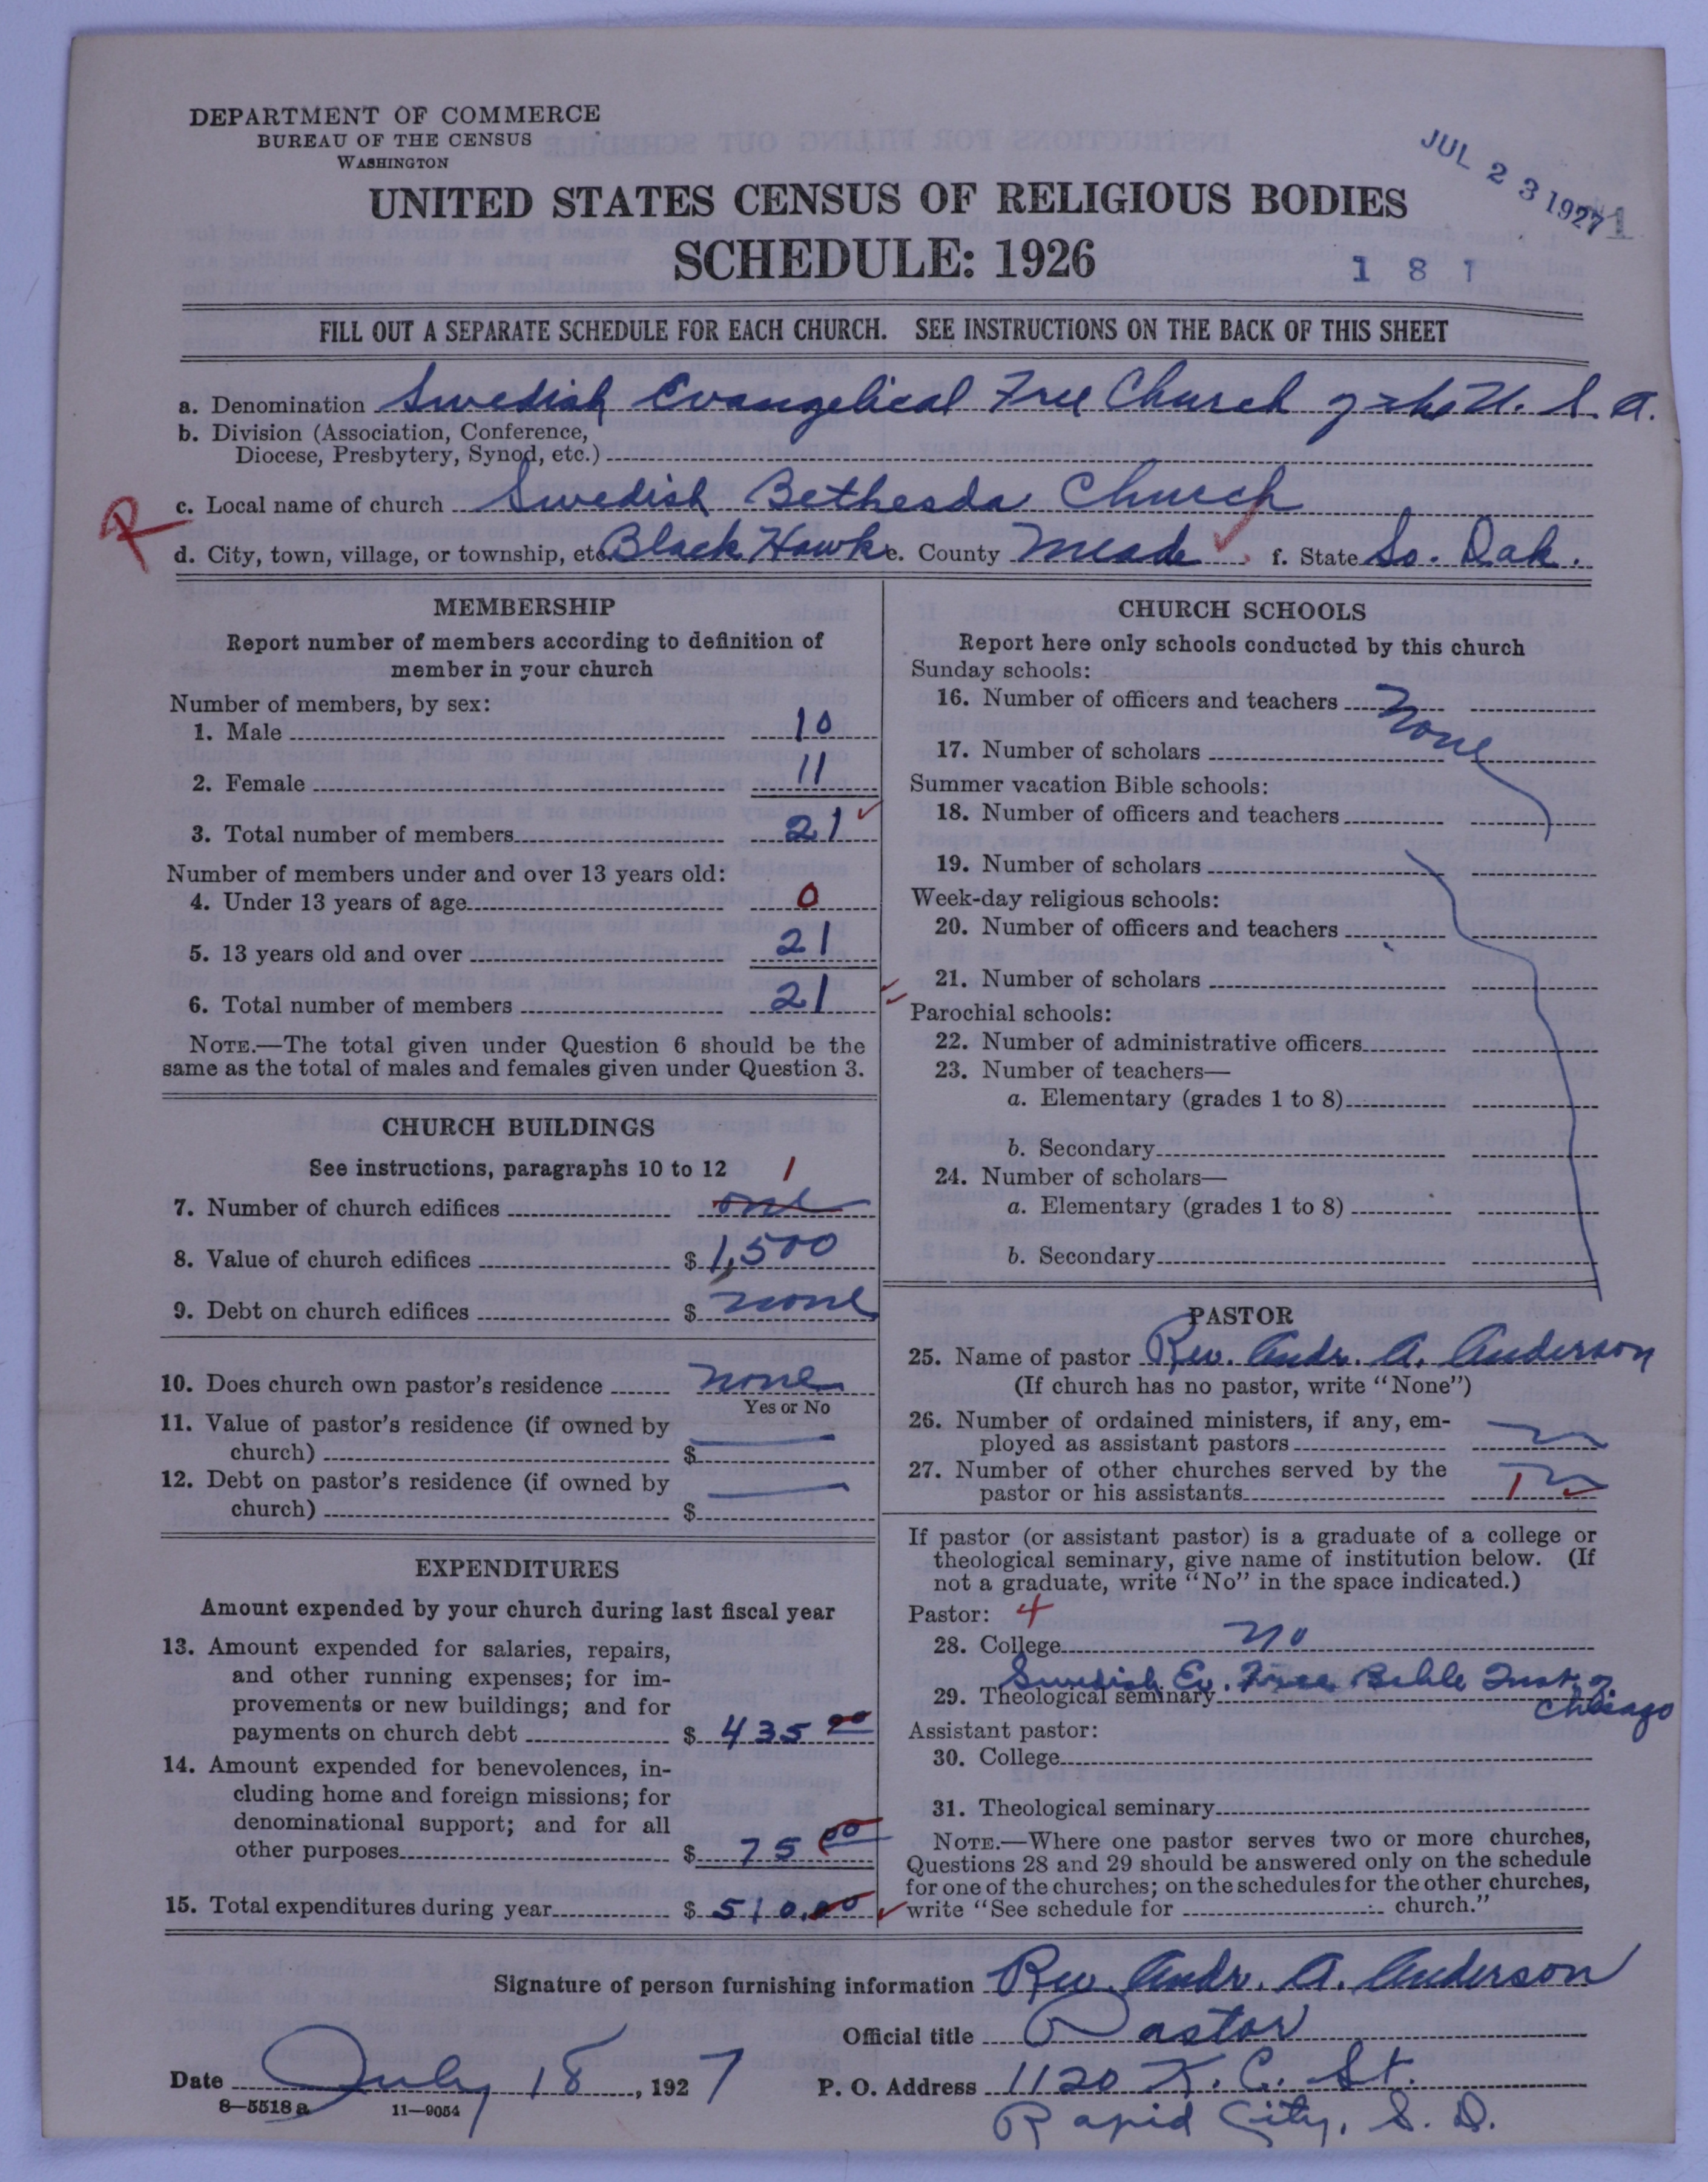 DEPARTMENT OF COMMERCE
BUREAU OF THE CENSUS
WASHINGTON
JUL 23 1927
1
UNITED STATES CENSUS OF RELIGIOUS BODIES
SCHEDULE: 1926
1 8 1
FILL OUT A SEPARATE SCHEDULE FOR EACH CHURCH. SEE INSTRUCTIONS ON THE BACK OF THIS SHEET
a. Denomination Swedish Evangelical Free Church of the U. S. A.
b. Division (Association, Conference,
Diocese, Presbytery, Synod, etc.)
c. Local name of church Swedish Bethesda Church
d. City, town, village, or township, etc. Black Hawk e. County Meade f. State So. Dak.
MEMBERSHIP
Report number of members according to definition of
member in your church
Number of members, by sex:
1. Male 10
2. Female 11
3. Total number of members 21
Number of members under and over 13 years old:
4. Under 13 years of age 0
5. 13 years old and over 21
6. Total number of members 21
NOTE.—The total given under Question 6 should be the
same as the total of males and females given under Question 3.
CHURCH BUILDINGS
See instructions, paragraphs 10 to 12
1
7. Number of church edifices one
8. Value of church edifices $ 1,500
9. Debt on church edifices $ none
10. Does church own pastor's residence none
Yes or No
11. Value of pastor's residence (if owned by
church) $
12. Debt on pastor's residence (if owned by
church) $
EXPENDITURES
Amount expended by your church during last fiscal year
13. Amount expended for salaries, repairs,
and other running expenses; for im-
provements or new buildings; and for
payments on church debt $ 435 00
14. Amount expended for benevolences, in-
cluding home and foreign missions; for
denominational support; and for all
other purposes $ 75 00
15. Total expenditures during year $ 510.00
CHURCH SCHOOLS
Report here only schools conducted by this church
Sunday schools:
16. Number of officers and teachers None
17. Number of scholars
Summer vacation Bible schools:
18. Number of officers and teachers
19. Number of scholars
Week-day religious schools:
20. Number of officers and teachers
21. Number of scholars
Parochial schools:
22. Number of administrative officers
23. Number of teachers—
a. Elementary (grades 1 to 8)
b. Secondary
24. Number of scholars—
a. Elementary (grades 1 to 8)
b. Secondary
PASTOR
25. Name of pastor Rev. Andr. A. Anderson
(If church has no pastor, write "None")
26. Number of ordained ministers, if any, em-
ployed as assistant pastors
27. Number of other churches served by the
pastor or his assistants 1
If pastor (or assistant pastor) is a graduate of a college or
theological seminary, give name of institution below. (If
not a graduate, write "No" in the space indicated.)
Pastor: 4
28. College no
29. Theological seminary Swedish Ev. Free Bible Inst. of
Chicago
Assistant pastor:
30. College
31. Theological seminary
NOTE.—Where one pastor serves two or more churches,
Questions 28 and 29 should be answered only on the schedule
for one of the churches; on the schedules for the other churches,
write "See schedule for church."
Signature of person furnishing information Rev. Andr. A. Anderson
Official title Pastor
Date July 18, 1927 P. O. Address 1120 K. C. St.
Rapid City, S. D.
8—5518 a 11—9054